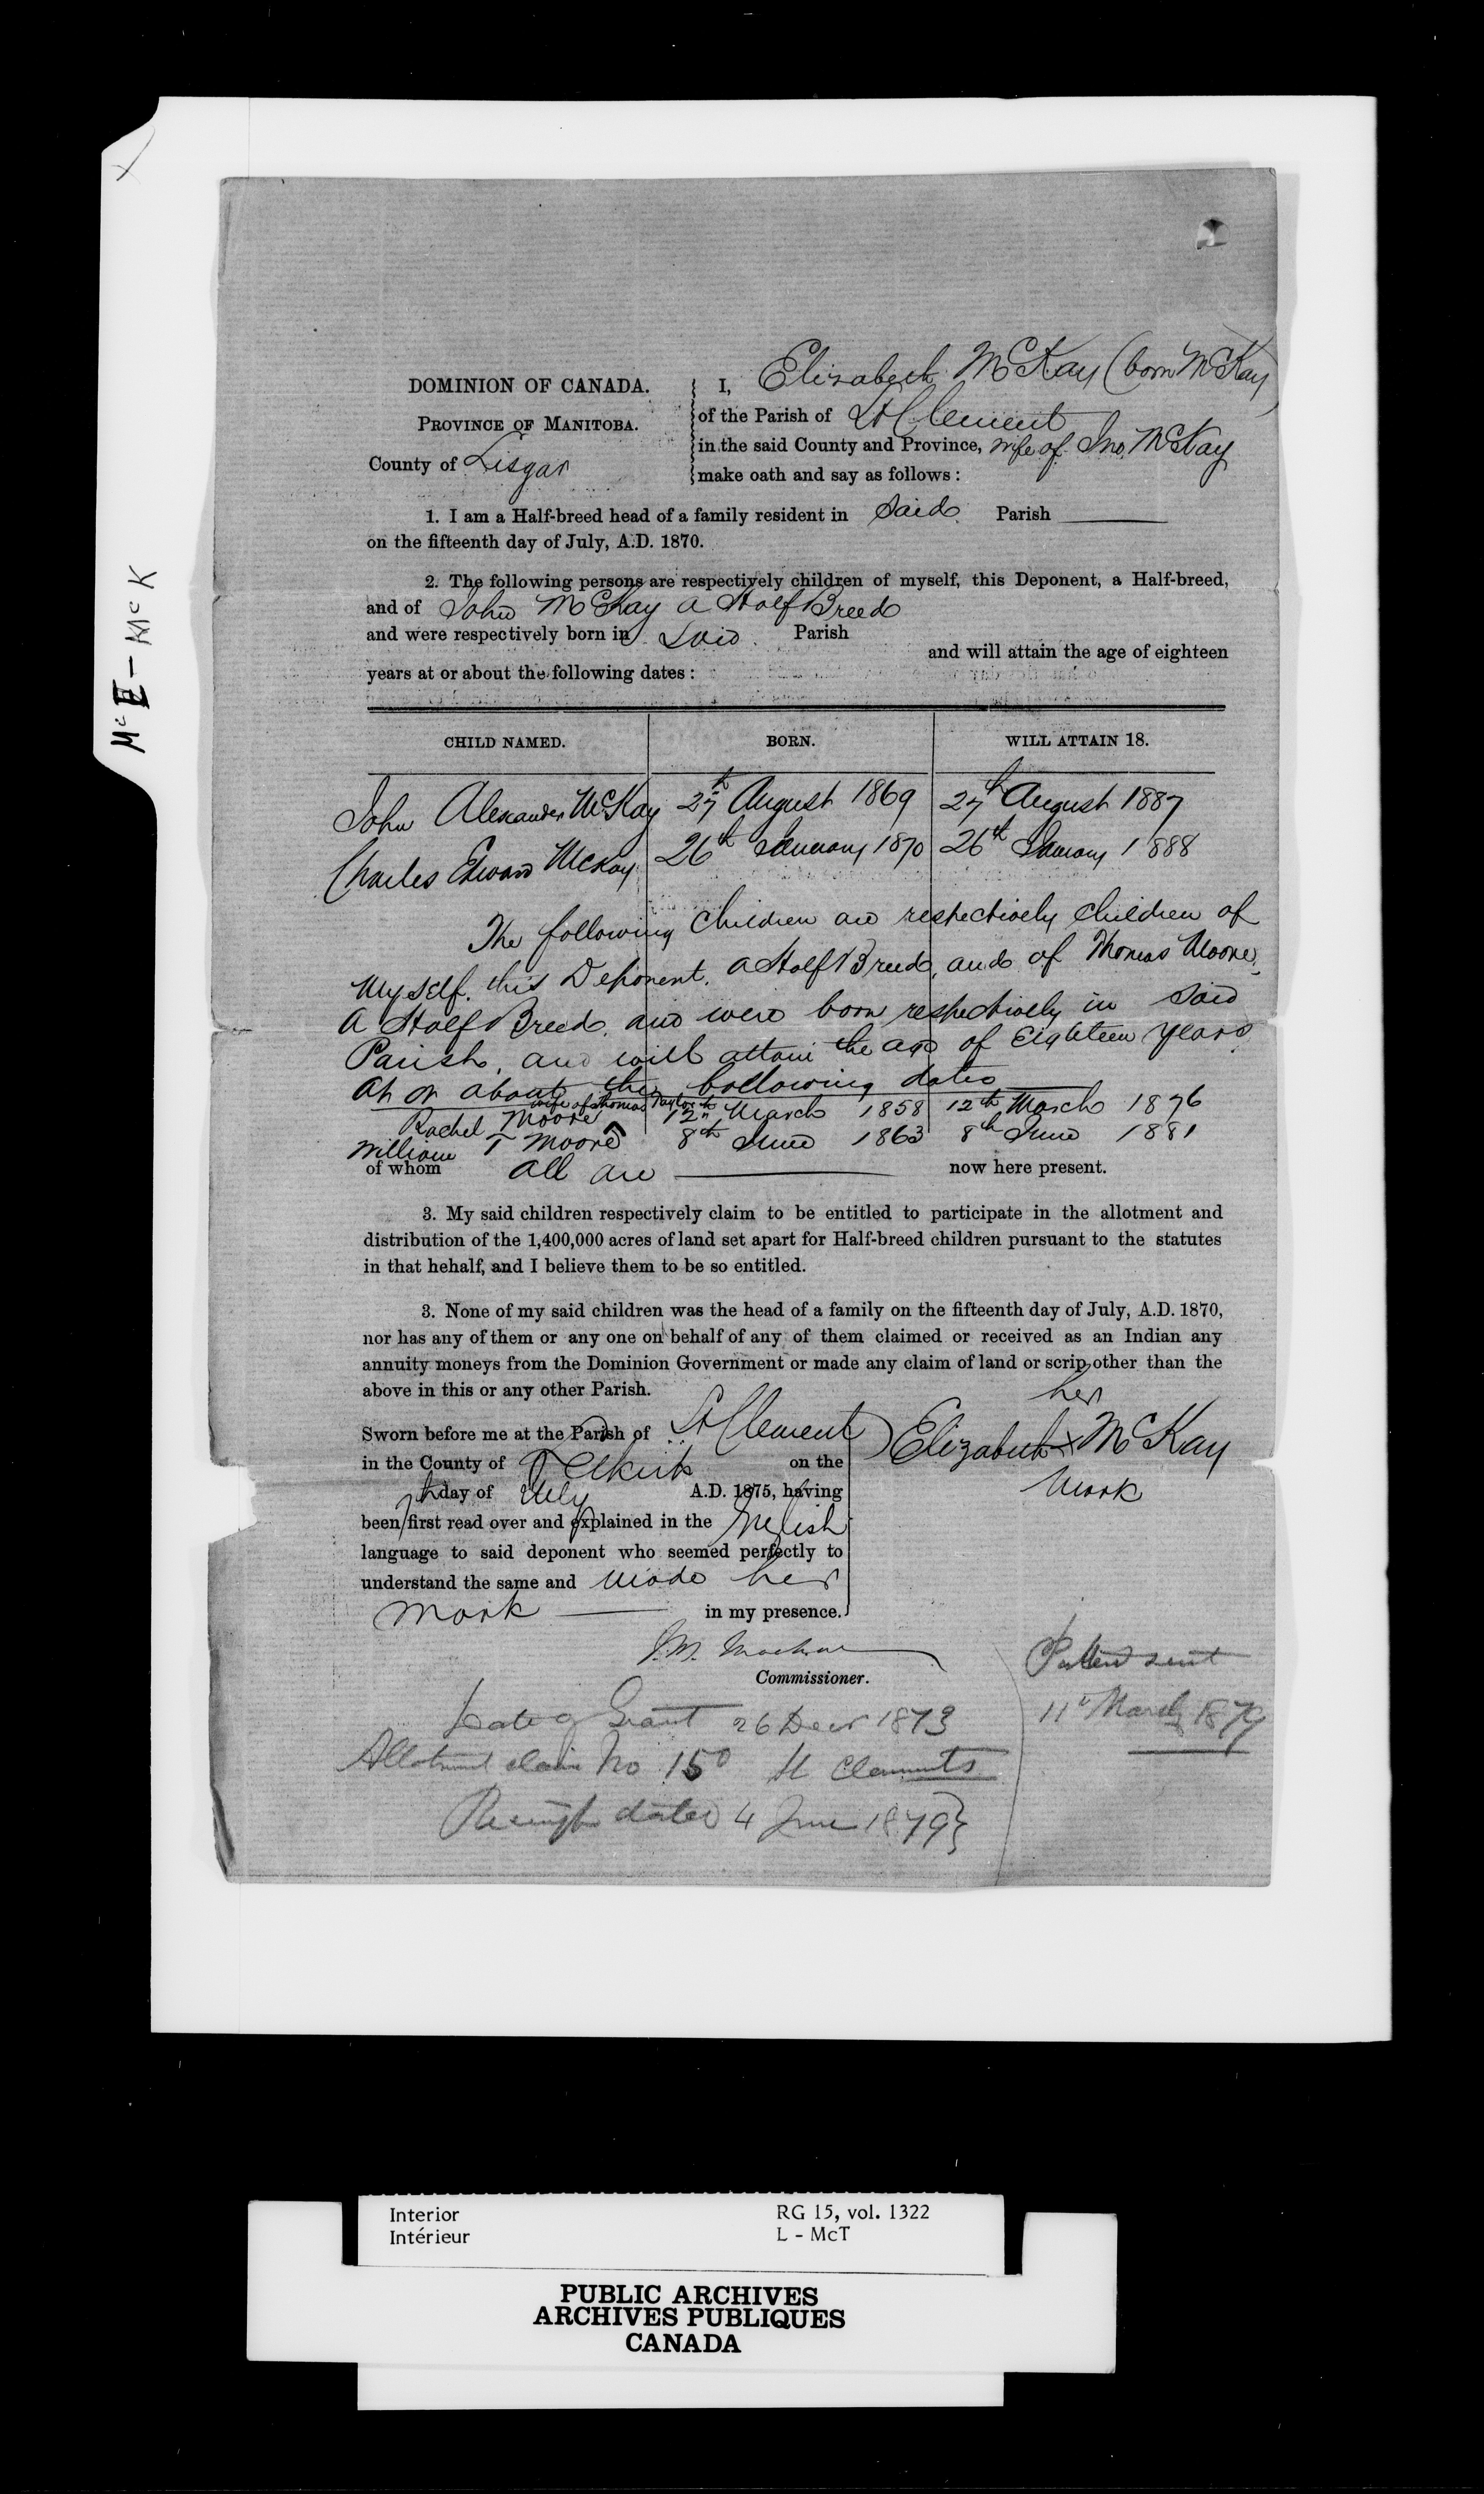 McE - McK
DOMINION OF CANADA.
PROVINCE OF MANITOBA.
County of Lisgar
I, Elizabeth McKay (born McKay)
of the Parish of St Clement
in the said County and Province, wife of Jno. McKay
make oath and say as follows:
1. I am a Half-breed head of a family resident in said Parish
on the fifteenth day of July, A.D. 1870.
2. The following persons are respectively children of myself, this Deponent, a Half-breed,
and of John McKay a Half Breed
and were respectively born in said Parish
and will attain the age of eighteen
years at or about the following dates:
CHILD NAMED. BORN. WILL ATTAIN 18.
John Alexander McKay 27th August 1869 27th August 1887
Charles Edward McKay 26th January 1870 26th January 1888
The following children are respectively children of
myself, this Deponent, a Half Breed, and of Thomas Moore,
a Half Breed, and were born respectively in said
Parish, and will attain the age of Eighteen years
at or about the following dates
wife of Thomas Taylor
Rachel Moore 12th March 1858 12th March 1876
William T Moore 8th June 1863 8th June 1881
of whom all are now here present.
3. My said children respectively claim to be entitled to participate in the allotment and
distribution of the 1,400,000 acres of land set apart for Half-breed children pursuant to the statutes
in that hehalf, and I believe them to be so entitled.
3. None of my said children was the head of a family on the fifteenth day of July, A.D. 1870,
nor has any of them or any one on behalf of any of them claimed or received as an Indian any
annuity moneys from the Dominion Government or made any claim of land or scrip other than the
above in this or any other Parish.
Sworn before me at the Parish of St Clement
in the County of Selkirk on the
7th day of July A.D. 1875, having
been first read over and explained in the English
language to said deponent who seemed perfectly to
understand the same and made her
mark in my presence.
her
Elizabeth X McKay
mark
J.M. Machar
Commissioner.
Patent sent
11th March 1879
Date of Grant 26 Decr 1873
Allotment claim No 150 St Clements
Receipt dated 4 June 1879
Interior
Intérieur
RG 15, vol. 1322
L - McT
PUBLIC ARCHIVES
ARCHIVES PUBLIQUES
CANADA